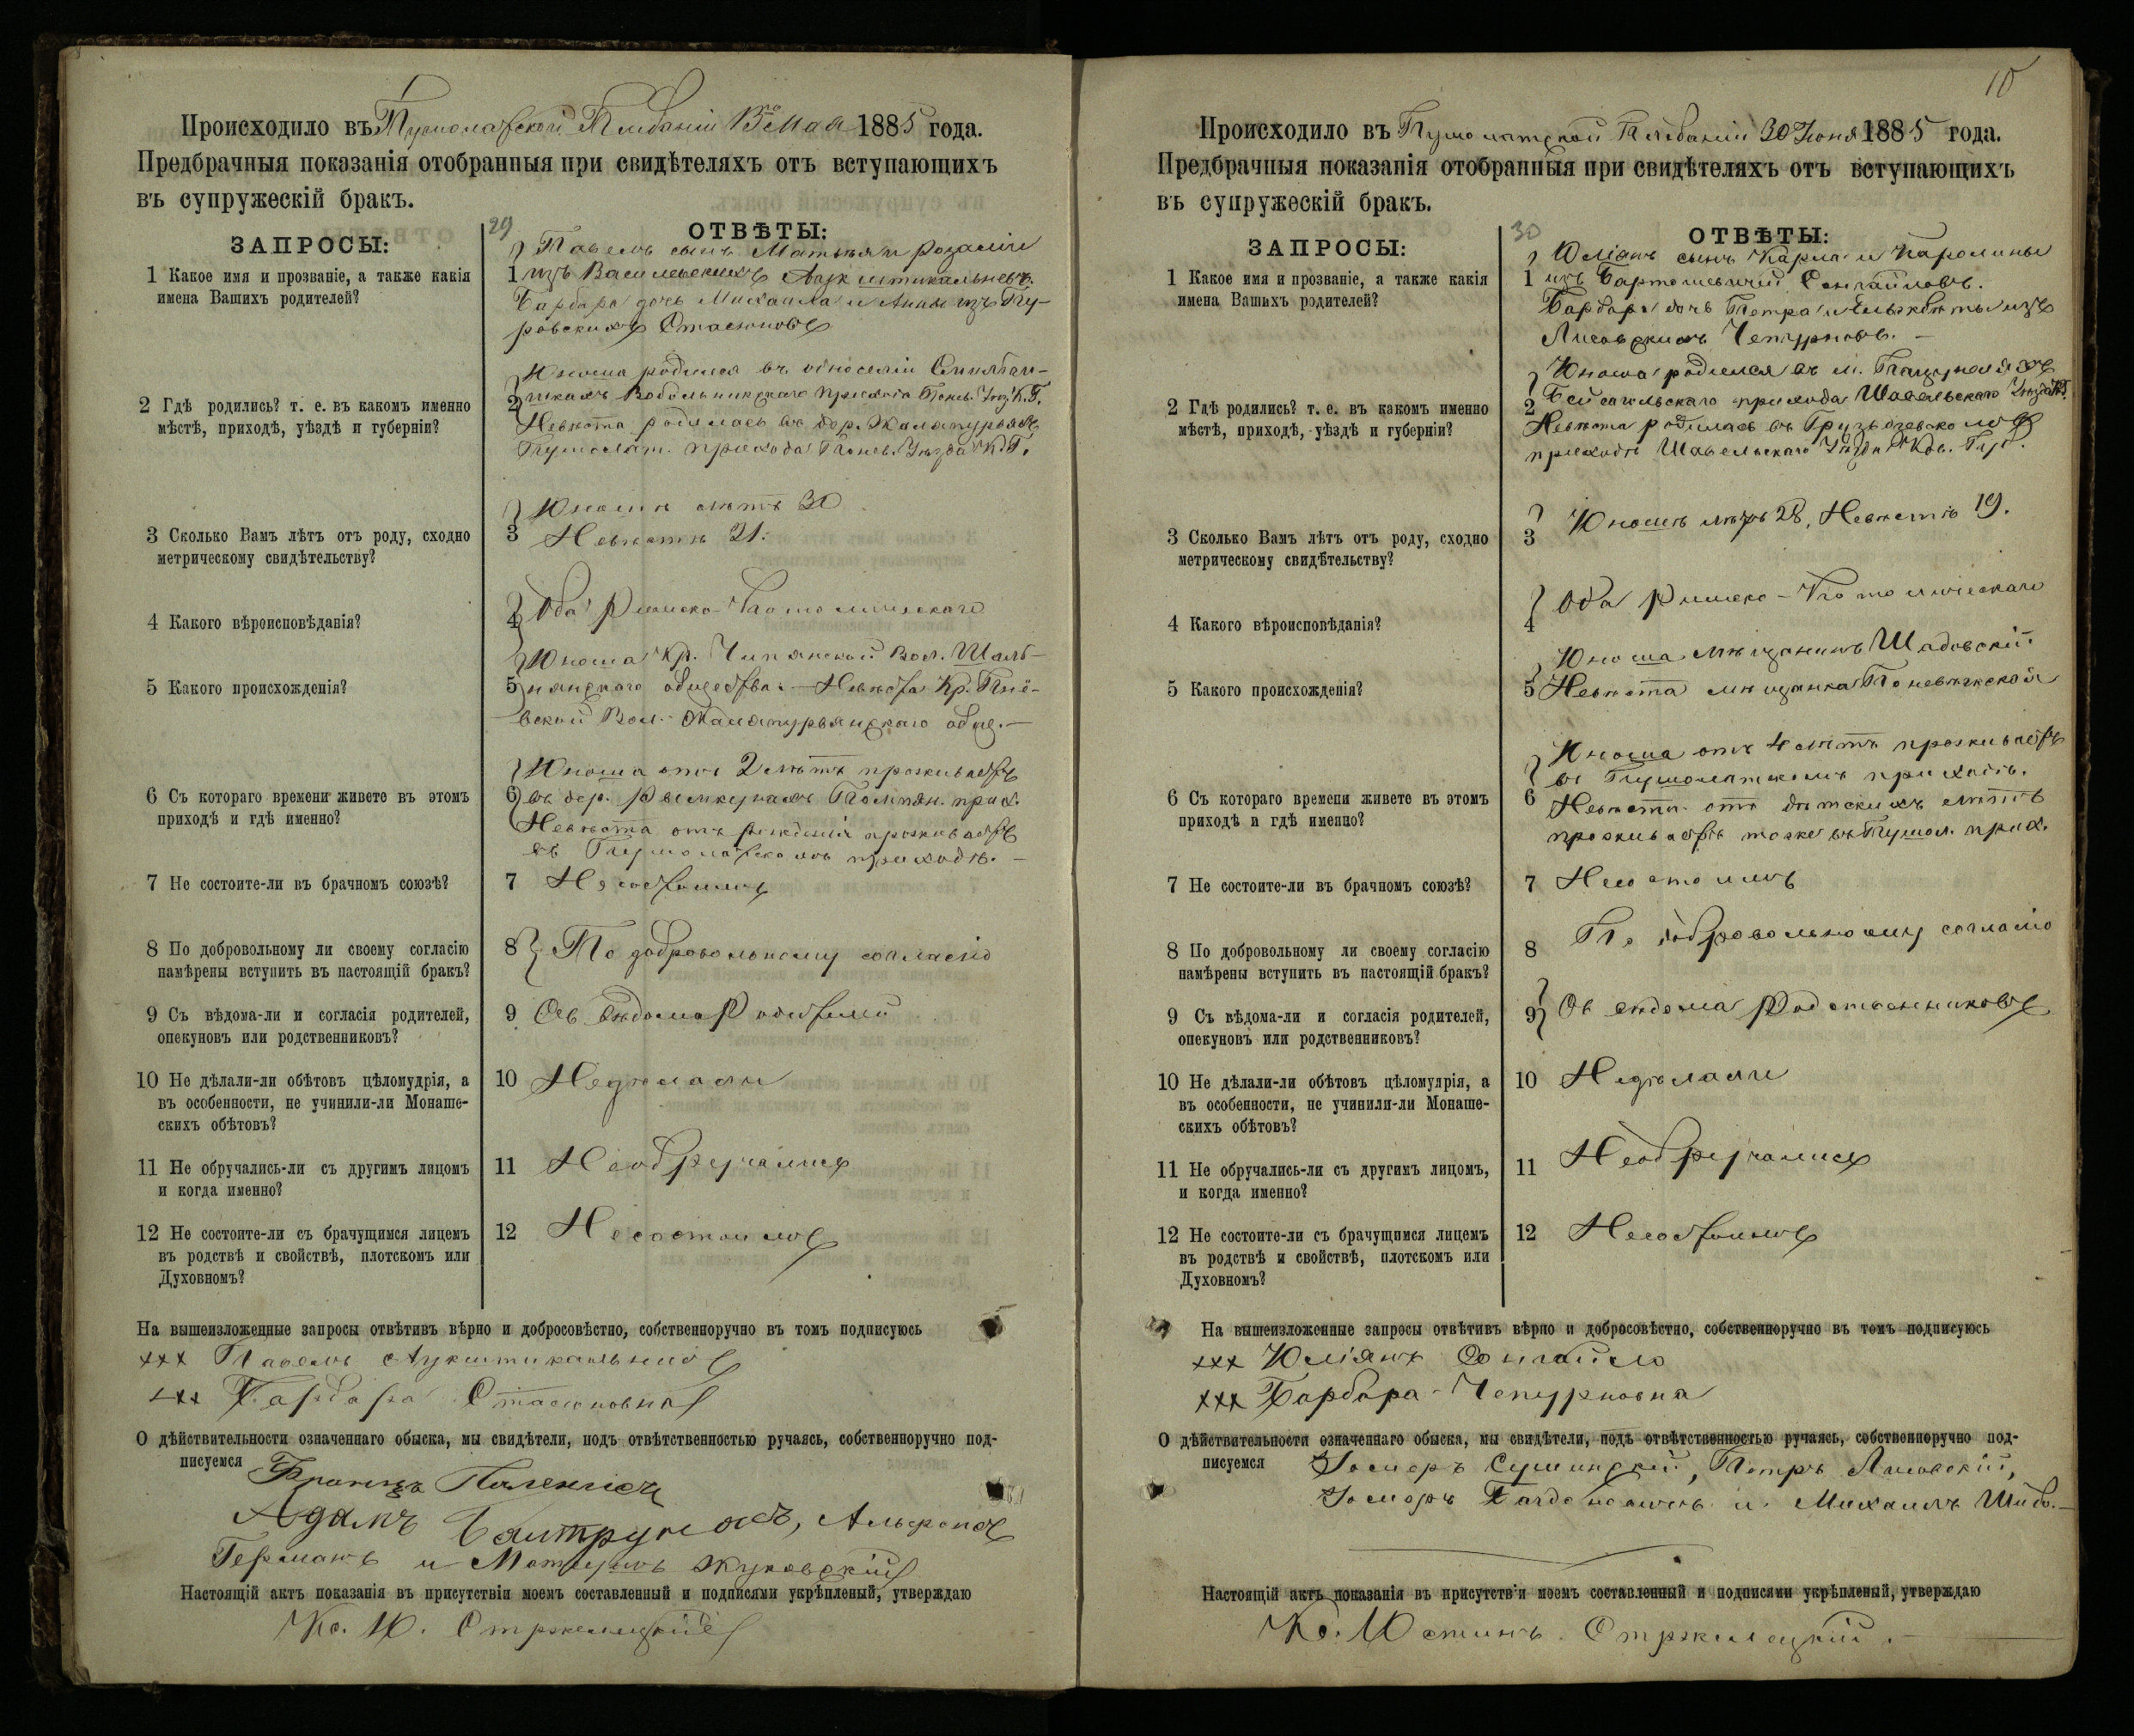 Происходило въ Пумолатской Плебаніи 13го Мая 1885 года.
Предбрачныя показанія отобранныя при свидѣтеляхъ отъ вступающихъ
въ супружескій бракъ.
29
ЗАПРОСЫ:
ОТВѢТЫ:
1 Какое имя и прозваніе, а также какія
имена Вашихъ родителей?
Павелъ сынъ Матвѣя и Розаліи
1 изъ Василевскихъ
Барбара дочь Михаила и Анны изъ Пу-
ровскихъ Стасюновъ
2 Гдѣ родились? т. е. въ какомъ именно
мѣстѣ, приходѣ, уѣздѣ и губерніи?
Юноша родился въ односеліи
2 Вобольникскаго прихода Понев. Уѣз. К. Г.
Невѣста родилась въ дер.
Пумолат. прихода Понев. Уѣзда К. Г.
3 Сколько Вамъ лѣтъ отъ роду, сходно
метрическому свидѣтельству?
Юношѣ лѣтъ 30
3 Невѣстѣ 21.
4 Какого вѣроисповѣданія?
4 Оба Римско-Католическаго
5 Какого происхожденія?
Юноша Кр. Чипянской Вол.
5 общества. — Невѣста Кр.
Вол. общ. —
6 Съ котораго времени живете въ этомъ
приходѣ и гдѣ именно?
Юноша отъ 2 лѣтъ проживаетъ
6 въ дер. прих.
Невѣста отъ рожденія проживаетъ
въ Пумолатскомъ приходѣ. —
7 Не состоите-ли въ брачномъ союзѣ?
7 Не состоимъ
8 По добровольному ли своему согласію
намѣрены вступить въ настоящій бракъ?
8 По добровольному согласію
9 Съ вѣдома-ли и согласія родителей,
опекуновъ или родственниковъ?
9 Съ вѣдома Родителей
10 Не дѣлали-ли обѣтовъ цѣломудрія, а
въ особенности, не учинили-ли Монаше-
скихъ обѣтовъ?
10 Недѣлали
11 Не обручались-ли съ другимъ лицомъ
и когда именно?
11 Необручались
12 Не состоите-ли съ брачущимся лицемъ
въ родствѣ и свойствѣ, плотскомъ или
Духовномъ?
12 Несостоимъ
На вышеизложенные запросы отвѣтивъ вѣрно и добросовѣстно, собственноручно въ томъ подписуюсь
xxx Павелъ
xxx Барбара Стасюновна
О дѣйствительности означеннаго обыска, мы свидѣтели, подъ отвѣтственностью ручаясь, собственноручно под-
писуемся
Францъ
Адамъ
Германъ и Матеушъ Жуковскій
Настоящій актъ показанія въ присутствіи моемъ составленный и подписями укрѣпленый, утверждаю
Кс. Ю. Стржемецкій
10
Происходило въ Пумолатской Плебаніи 30 Іюня 1885 года.
Предбрачныя показанія отобранныя при свидѣтеляхъ отъ вступающихъ
въ супружескій бракъ.
30
ЗАПРОСЫ:
ОТВѢТЫ:
1 Какое имя и прозваніе, а также какія
имена Вашихъ родителей?
Юліянъ сынъ Карла и Каролины
1 изъ Бартошевичей Сонгайловъ.
Барбара дочь Петра и изъ
Лисовскихъ Чепурновъ. —
2 Гдѣ родились? т. е. въ какомъ именно
мѣстѣ, приходѣ, уѣздѣ и губерніи?
Юноша родился въ м.
2 Бейсагольскаго прихода Шавельскаго Уѣзда К. Г.
Невѣста родилась въ
приходѣ Шавельскаго Уѣзда Ков. Губ.
3 Сколько Вамъ лѣтъ отъ роду, сходно
метрическому свидѣтельству?
3 Юношѣ лѣтъ 28, Невѣстѣ 19.
4 Какого вѣроисповѣданія?
4 Оба Римско-Католическаго
5 Какого происхожденія?
Юноша мѣщанинъ Шадовскій
5 Невѣста мѣщанка Поневѣжской
6 Съ котораго времени живете въ этомъ
приходѣ и гдѣ именно?
Юноша отъ 4 лѣтъ проживаетъ
въ Пумолатскомъ приходѣ.
6 Невѣста отъ дѣтскихъ лѣтъ
проживаетъ тоже въ Пумол. прих.
7 Не состоите-ли въ брачномъ союзѣ?
7 Несостоимъ
8 По добровольному ли своему согласію
намѣрены вступить въ настоящій бракъ?
8 По добровольному согласію
9 Съ вѣдома-ли и согласія родителей,
опекуновъ или родственниковъ?
9 Съ вѣдома Родственниковъ
10 Не дѣлали-ли обѣтовъ цѣломудрія, а
въ особенности, не учинили-ли Монаше-
скихъ обѣтовъ?
10 Недѣлали
11 Не обручались-ли съ другимъ лицомъ,
и когда именно?
11 Необручались
12 Не состоите-ли съ брачущимся лицемъ
въ родствѣ и свойствѣ, плотскомъ или
Духовномъ?
12 Несостоимъ
На вышеизложенные запросы отвѣтивъ вѣрно и добросовѣстно, собственноручно въ томъ подписуюсь
xxx Юліянъ Сонгайло
xxx Барбара Чепурновна
О дѣйствительности означеннаго обыска, мы свидѣтели, подъ отвѣтственностью ручаясь, собственноручно под-
писуемся
Петръ Лисовскій,
и Михаилъ
Настоящій актъ показанія въ присутствіи моемъ составленный и подписями укрѣпленый, утверждаю
Кс. Юстинъ Стржемецкій. —